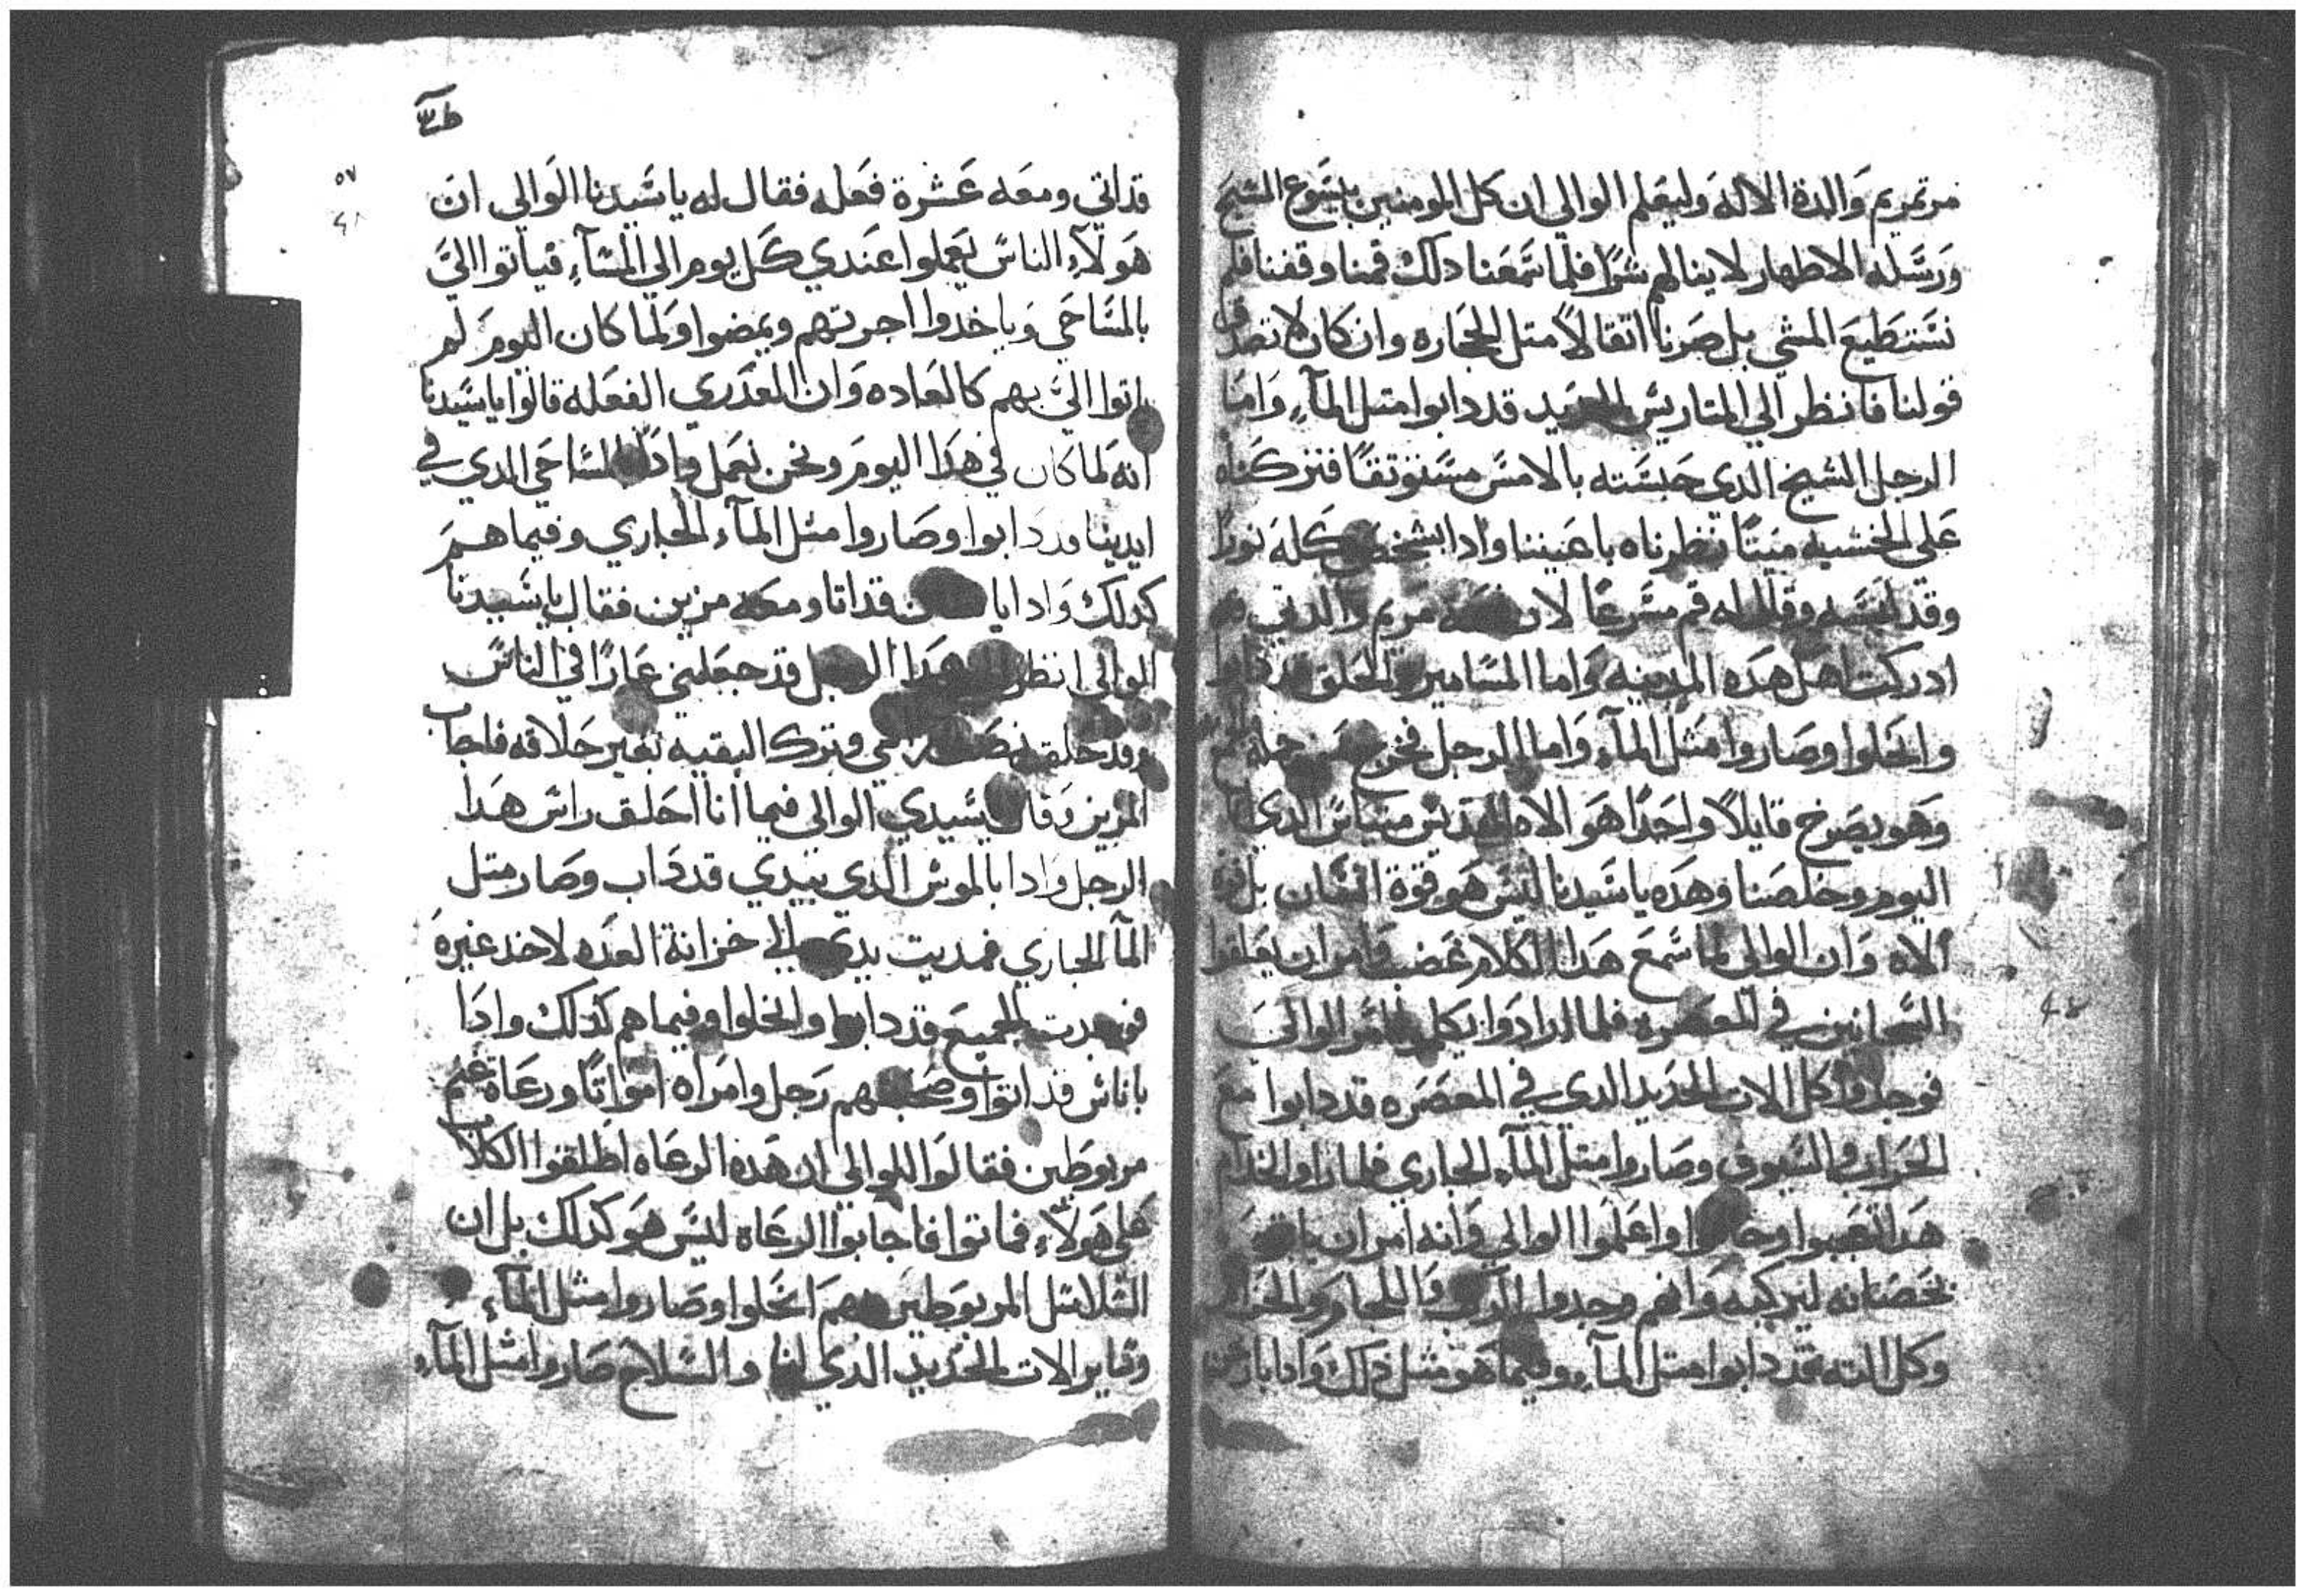 مرتمريم والدة الاله وليعلم الوالي ان كل المومنين بايسوع المسيح
ورسله الاطهار لا ينالهم شرا فلما سمعنا دلك قمنا وقفنا فلم
نستطيع المشي بل صرنا اتقالا متل الحجاره وان كان لا تصدق
قولنا فانظر الي المتاريس الحديد قد دابوا متل المآء واما
الرجل الشيخ الدي حبسته بالامس مستوتقا فتركناه
علي الخشبه ميتا نظرناه باعيننا وادا بشخص كله نورا
وقد لمسه وقال له قم مسرعا لان مريم والدتي قد
ادركت اهل هده المدينه واما المسامير والحلق قد دابوا
وانحلوا وصاروا متل المآء واما الرجل فخرج
وهو يصرخ قايلا واحدا هو الاه القديس متياس الدي
اليوم وخلصنا وهده يا سيدنا ليس هو قوة انسان بل قوة
الاه وان الوالي لما سمع هدا الكلام غضب وامر ان يعلقوا
السجانين في المعصره فلما ارادوا يكملوا امر الوالي
فوجدوا كل الات الحديد الدي في المعصره قد دابوا مع
الحراب والسيوف وصاروا متل المآء الجاري فلما راوا الخدام
هدا تعجبوا وخافوا واعلموا الوالي وانه امر ان ياتوه
بحصانه ليركبه وانهم وجدوا واللجام والحزام
وكل الته قد دابوا متل المآء وفيما هو متل دلك وادا بارخن
٥٧
قد اتي ومعه عشرة فعله فقال له يا سيدنا الوالي ان
هولآء الناس يعملوا عندي كل يوم الي المسآء فياتوا الي
بالمساحي وياخدوا اجرتهم ويمضوا ولما كان اليوم لم
ياتوا الي بهم كالعاده وان الفعله قالوا يا سيدنا
انه لما كان في هدا اليوم ونحن نعمل وادا المساحي الدي في
ايدينا قد دابوا وصاروا متل المآء الجاري وفيما هم
كدلك وادا قد اتا ومعه مزين فقال يا سيدنا
الوالي انظر هدا الرجل قد جعلني عارا في الناس
وقد حلق نصف راسي وترك البقيه بغير حلاقه فاجاب
المزين وقال يا سيدي الوالي فيما انا احلق راس هدا
الرجل وادا بالموس الدي بيدي قد داب وصار متل
المآ الجاري فمديت يدي الي خزانة العده لاخد غيره
فوجدت الجميع قد دابوا وانحلوا وفيما هم كدلك وادا
باناس قد اتوا وصحبتهم رجل وامراه امواتا ورعاة غنم
مربوطين فقالوا للوالي ان هده الرعاه اطلقوا الكلاب
علي هولآء فماتوا فاجابوا الرعاه ليس هو كدلك بل ان
السلاسل المربوطين بهم انحلوا وصاروا متل المآء
وساير الات الحديد الدي لنا والسلاح صاروا متل المآء